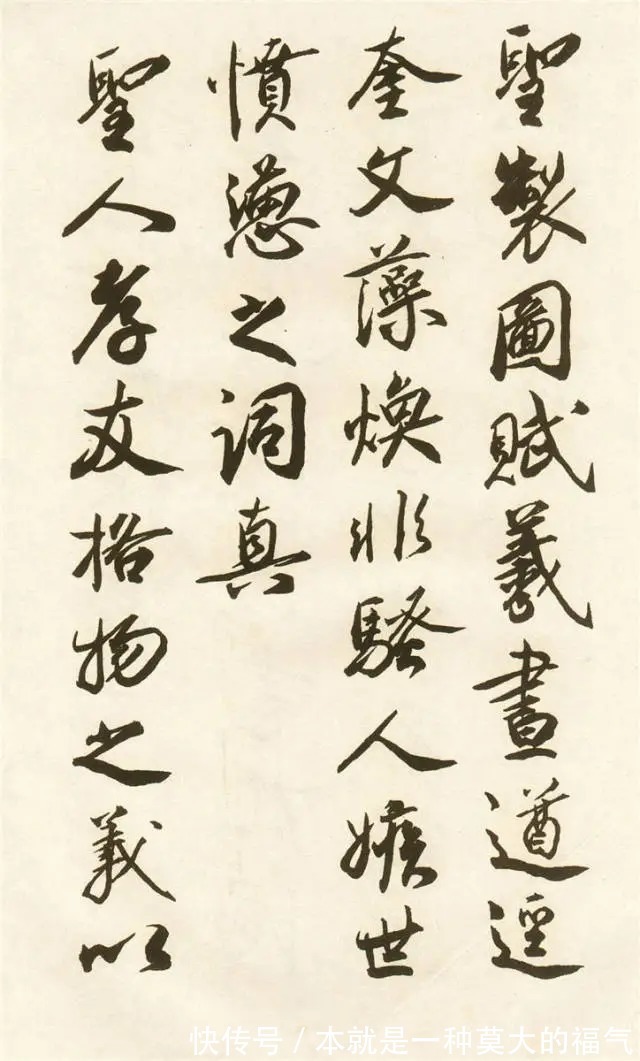 聖製圖賦羲畫遒逕
奎文藻煥非騷人嫉世
憤懣之詞真
聖人孝友格物之義以
快传号/本就是一种莫大的福气